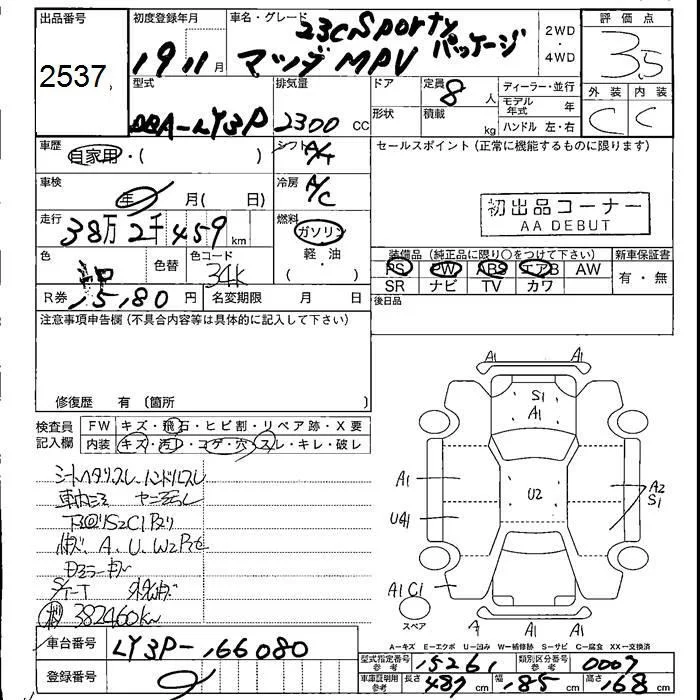 出品番号
2537
初度登録年月
19 11 月
車名・グレード
23C Sporty パッケージ
マツダ MPV
2WD
・
4WD
評価点
3.5
外装 内装
C C
型式
DBA-LY3P
排気量
2300 CC
ドア
形状
定員
8 人
積載
kg
ディーラー・並行
モデル年式 年
ハンドル 左・右
車歴
自家用・( )
シフト
A/T
車検
年 月( 日)
冷房
A/C
走行
38万 2千 459 km
燃料
ガソリン
軽・油
( )
色
色替
色コード
34K
R券 15,180 円
名変期限 月 日
セールスポイント(正常に機能するものに限ります)
初出品コーナー
AA DEBUT
装備品(純正品に限り○をつけて下さい)
PS PW ABS エアB AW
SR ナビ TV カワ
新車保証書
有・無
後日品
注意事項申告欄(不具合内容等は具体的に記入して下さい)
修復歴 有〔箇所 〕
検査員記入欄
FW キズ・飛石・ヒビ割・リペア跡・X要
内装 キズ・汚れ・コゲ・穴・スレ・キレ・破レ
シートヘタリ スレ、ハンドルスレ
キズ、A、U、W2
382460km
A1 A1
S1
A1
A1
U2
A2
S1
U41
A1 C1
スペア
A1 A1
A=キズ E=エクボ U=凹み W=補修跡 S=サビ C=腐食 XX=交換済
車台番号
LY3P-166080
登録番号
型式指定番号 参考 15261
類別区分番号 参考 0007
車庫証明用 参考 長さ 487 cm 幅 185 cm 高さ 168 cm